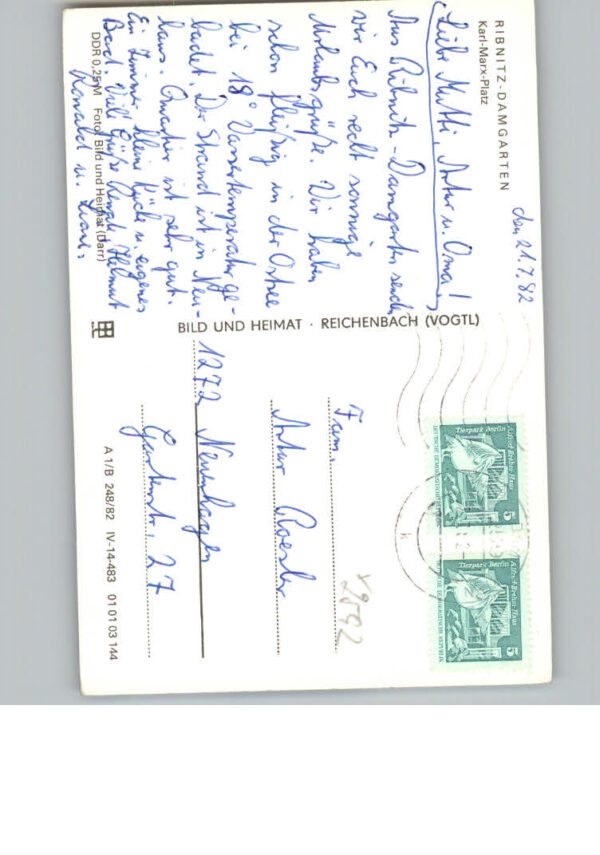 RIBNITZ-DAMGARTEN
Karl-Marx-Platz
den 21.7.82
Liebe Mutti, Artur u. Oma!
Aus Ribnitz-Damgarten senden
wir Euch recht sonnige
Urlaubsgrüße. Wir haben
schon fleißig in der Ostsee
bei 18° Wassertemperatur ge-
badet. Der Strand ist in Neu-
haus. Quartier ist sehr gut.
Ein Zimmer kleine Küche u. eigenes
Bad. Viel Grüße Helmut
Ronald u.
DDR 0,25 M Foto: Bild und Heimat (Darr)
BILD UND HEIMAT · REICHENBACH (VOGTL)
Fam.
Artur
1272 Neuenhagen
Gartenstr. 27
A 1/B 248/82 IV-14-483 01 01 03 144
Tierpark Berlin Alfred-Brehm-Haus
DEUTSCHE DEMOKRATISCHE REPUBLIK
5
Tierpark Berlin Alfred-Brehm-Haus
DEUTSCHE DEMOKRATISCHE REPUBLIK
5